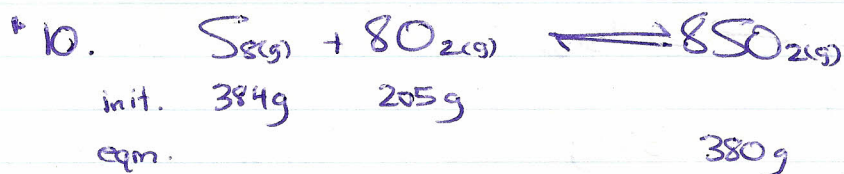 * 10. S8(g) + 8O2(g) ⇌ 8SO2(g)
init. 384g 205g
eqm. 380g